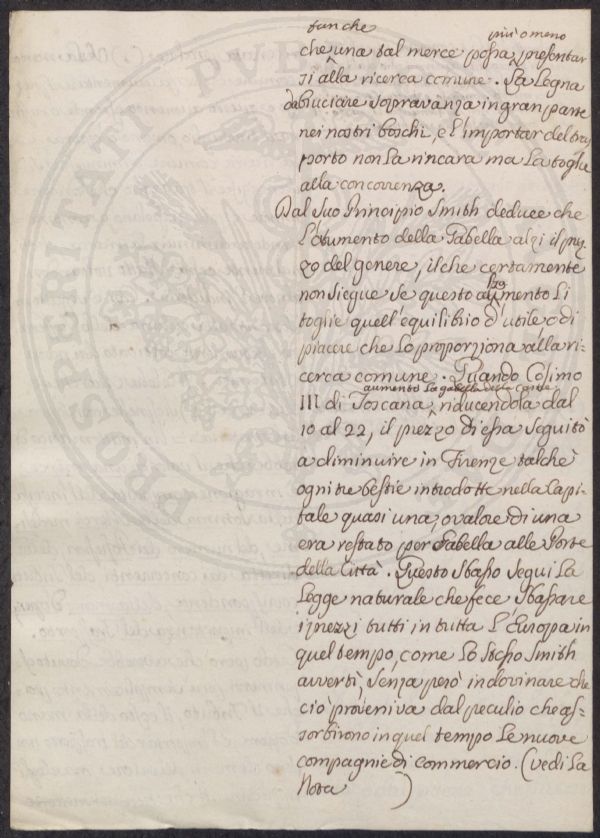 fanche
più o meno
che una tal merce possa presentar
si alla ricerca comune. La Legna
da bruciare sopravanza in gran parte
nei nostri boschi, e l'importar del tras
porto non la rincara ma la toglie
alla concorrenza.
Dal suo Principio Smith deduce che
l'aumento della Tabella alzi il prez
zo del genere, il che certamente
non siegue se questo alzamento li
toglie quell'equilibrio d'utile, o di
piacere che lo proporziona alla ri-
cerca comune. Quando Cosimo
aumento la gabella della Carne
III di Toscana, riducendola dal
10 al 22, il prezzo di essa seguitò
a diminuire in Firenze talchè
ogni tre bestie introdotte nella Capi-
tale quasi una, o valore di una
era restato per Tabella alle Porte
della Città. Questo sbasso seguì la
Legge naturale che fece sbassare
i prezzi tutti in tutta l'Europa in
quel tempo, come lo stesso Smith
avvertì, senza però indovinare che
ciò proveniva dal peculio che as-
sorbirono in quel tempo le nuove
compagnie di commercio. (vedi la
Nota )
PROSPERITATI PVB